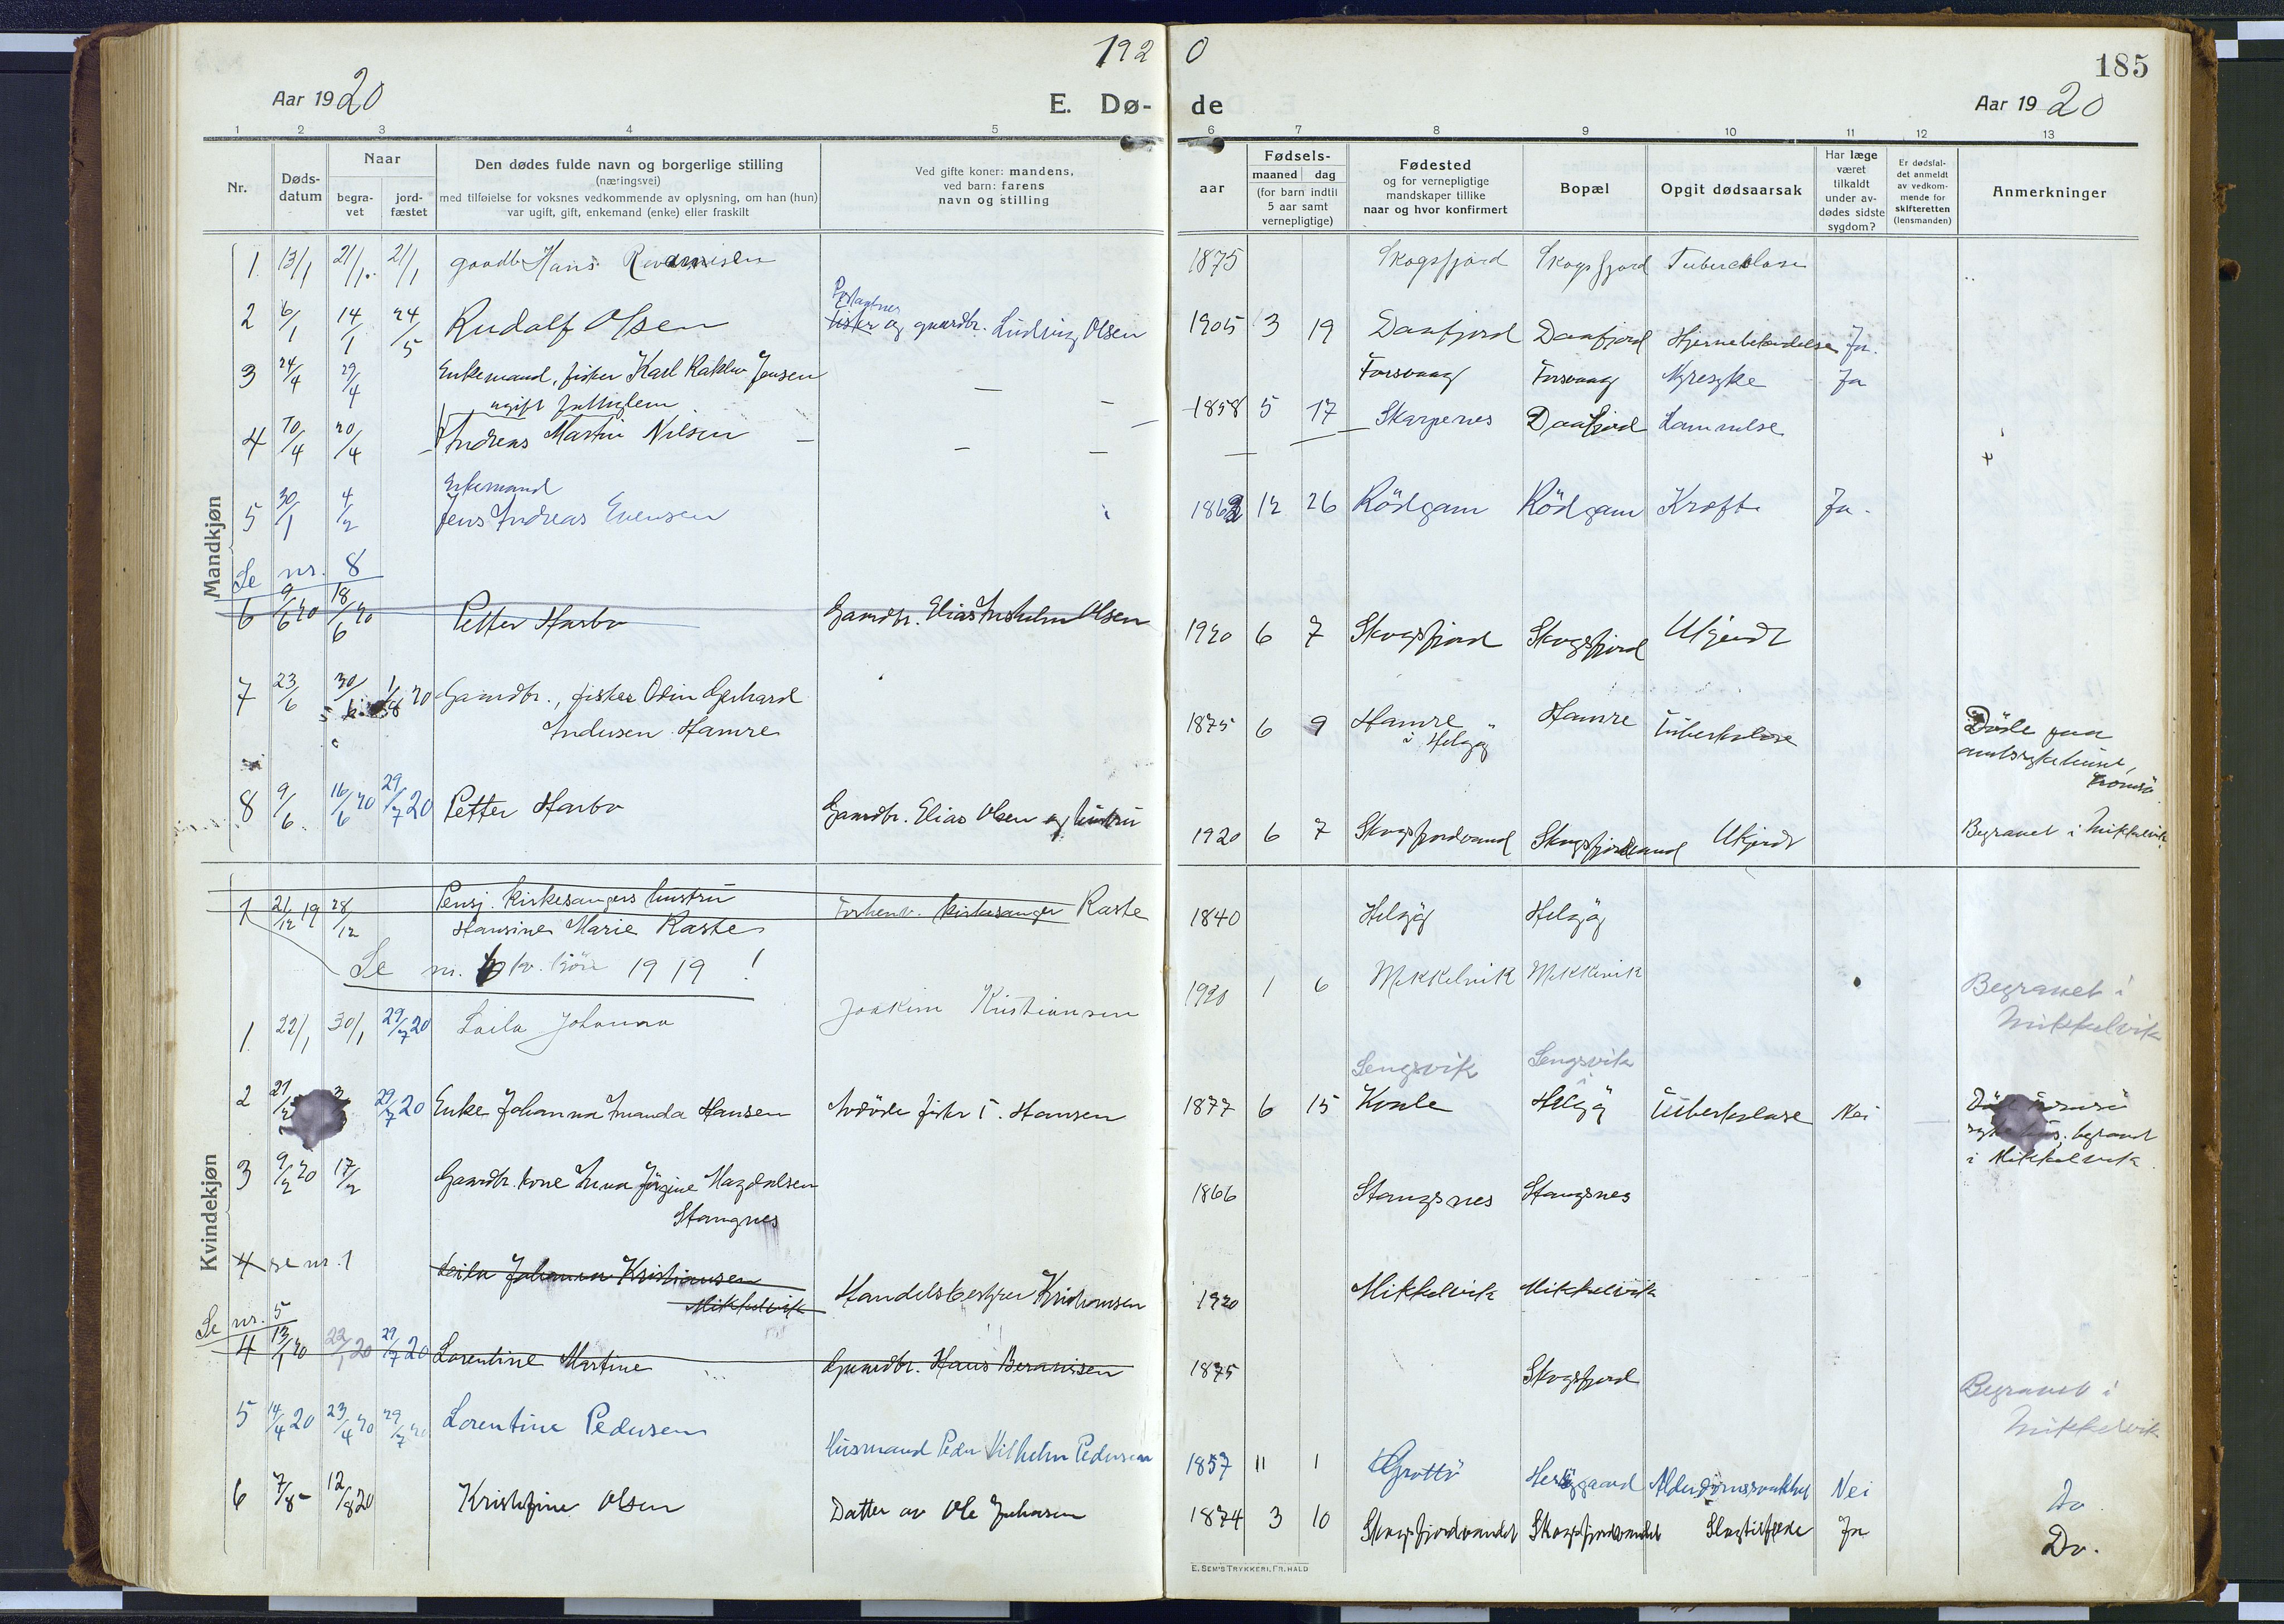 192 0
185
Aar 1920
E. Dø- de
Aar 1920
1 2 3 4 5 6 7 8 9 10 11 12 13
Nr.
Døds-
datum
Naar
begra-
vet
jord-
fæstet
Den dødes fulde navn og borgerlige stilling
(næringsvei)
med tilføielse for voksnes vedkommende av oplysning, om han (hun)
var ugift, gift, enkemand (enke) eller fraskilt
Ved gifte koner: mandens,
ved barn: farens
navn og stilling
aar
Fødsels-
maaned dag
(for barn indtil
5 aar samt
vernepligtige)
Fødested
og for vernepligtige
mandskaper tillike
naar og hvor konfirmert
Bopæl
Opgit dødsaarsak
Har læge
været
tilkaldt
under av-
dødes sidste
sygdom?
Er dødsfal-
det anmeldt
av vedkom-
mende for
skifteretten
(lensmanden)
Anmerkninger
Mandkjøn
1. 13/1 21/1 21/1 gaardb. Hans 1875 Skogsfjord Skogsfjord Tuberculose
2 6/1 14/1 24/5 Rudolf Olsen fisker og gaardbr. Ludvig Olsen 1905 3 19 Daafjord Daafjord Ja.
3 24/4 29/4 Enkemand, fisker Karl Jensen — Torsvaag Torsvaag Nyresyke Ja
ugift
4 10/4 20/4 Andreas Martin Nilsen — 1858 5 17 Skarpenes Daafjord Lammelse
Enkemand
5 30/1 4/2 Jens Andreas Evensen 1862 12 26 Rödgam Rödgam Kræft Ja.
Se nr. 8
6 9/6 20 18/6 20 Petter Harbo Gaardbr. Elias Olsen 1920 6 7 Skogsfjord Skogsfjord Ukjendt
7 23/6 30/6 1/8 20 Gaardbr., fisker Odin Gerhard
Andersen Hamre 1875 6 9 Hamre i Helgöy Hamre Tuberkulose Döde paa
amtssykehuset,
Tromsö.
8 9/6 16/6 20 29/7 20 Petter Harbo Gaardbr. Elias Olsen og hustru 1920 6 7 Skogsfjordvand Skogsfjordvand Ukjendt Begravet i Mikkelvik.
Kvindekjøn
1 21/12 19 28/12 Pensj. kirkesangers hustru
Hansine Marie Raste Forhenv. kirkesanger Raste 1840 Helgöy Helgöy
Se nr. kv. kjön 1919!
1. 22/1 30/1 29/7 20 Laila Johanna Joakim Kristiansen 1920 1 6 Mikkelvik Mikkelvik Begravet i
Mikkelvik
Lengsvik Lengsvik
2 29/7 20 Enke Johanna Amanda Hansen Avdöde fisker I. Hansen 1877 6 15 Kvale Helgöy Tuberkulose Nei
begravet
i Mikkelvik.
3 9/2 20 17/2 Gaardbr. kone Anna Jörgine Magdalsen
Stangnes 1866 Stangsnes Stangsnes
4 se nr. 1 Laila Johanna Kristiansen
Mikkelvik Handelsbestyrer Kristiansen 1920 Mikkelvik Mikkelvik
Se nr. 5
4 13/1 20 22/1 20 29/7 20 Lorentine Martine Gaardbr. Hans 1875 Skogsfjord Begravet i
Mikkelvik
5 14/4 20 23/4 20 29/7 20 Lorentine Pedersen Husmand Peder Vilhelm Pedersen 1857 11 1 Grøttö Nei Do.
6 7/8 12/8 20 Kristofine Olsen Datter av Ole Johansen 1874 3 10 Skogsfjordvandet Skogsfjordvandet Slagtilfælde Ja Do.
E. SEM'S TRYKKERI, FR.HALD